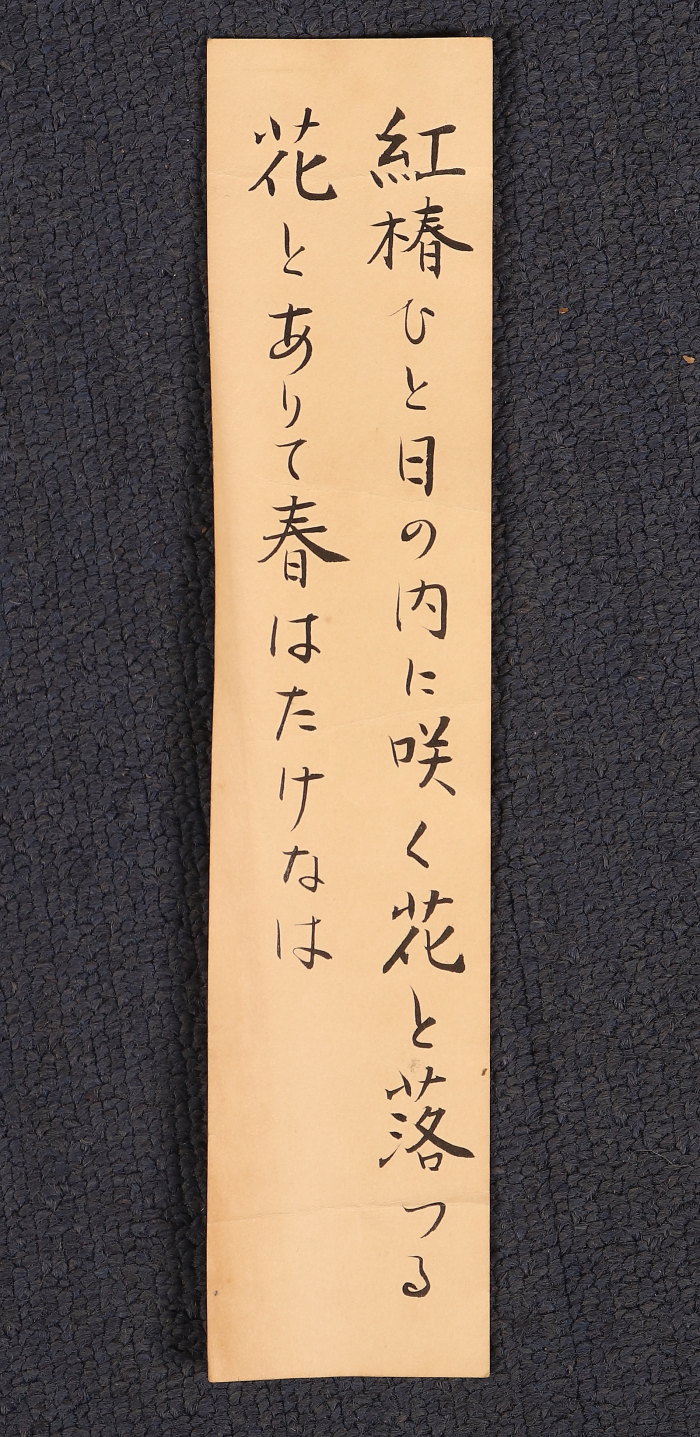 紅椿ひと日の内に咲く花と落つる
花とありて春はたけなは